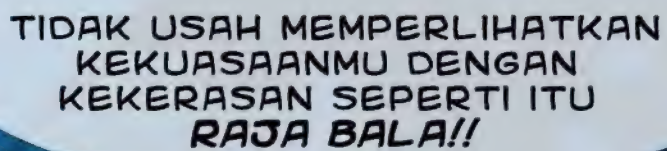 TIDAK USAH MEMPERLIHATKAN
KEKUASAANMU DENGAN
KEKERASAN SEPERTI ITU
RAJA BALA!!